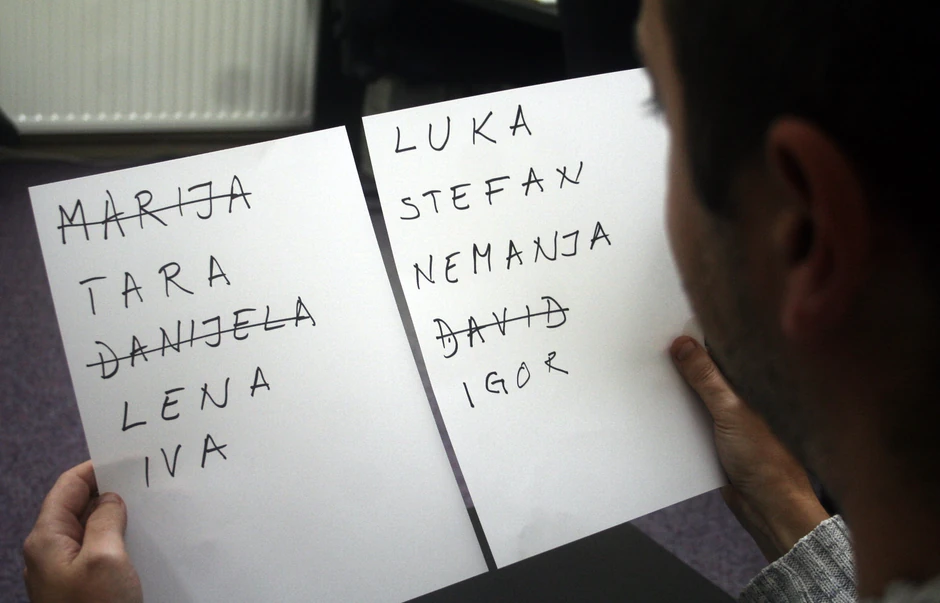 MARIJA
TARA
DANIJELA
LENA
IVA
LUKA
STEFAN
NEMANJA
DAVID
IGOR